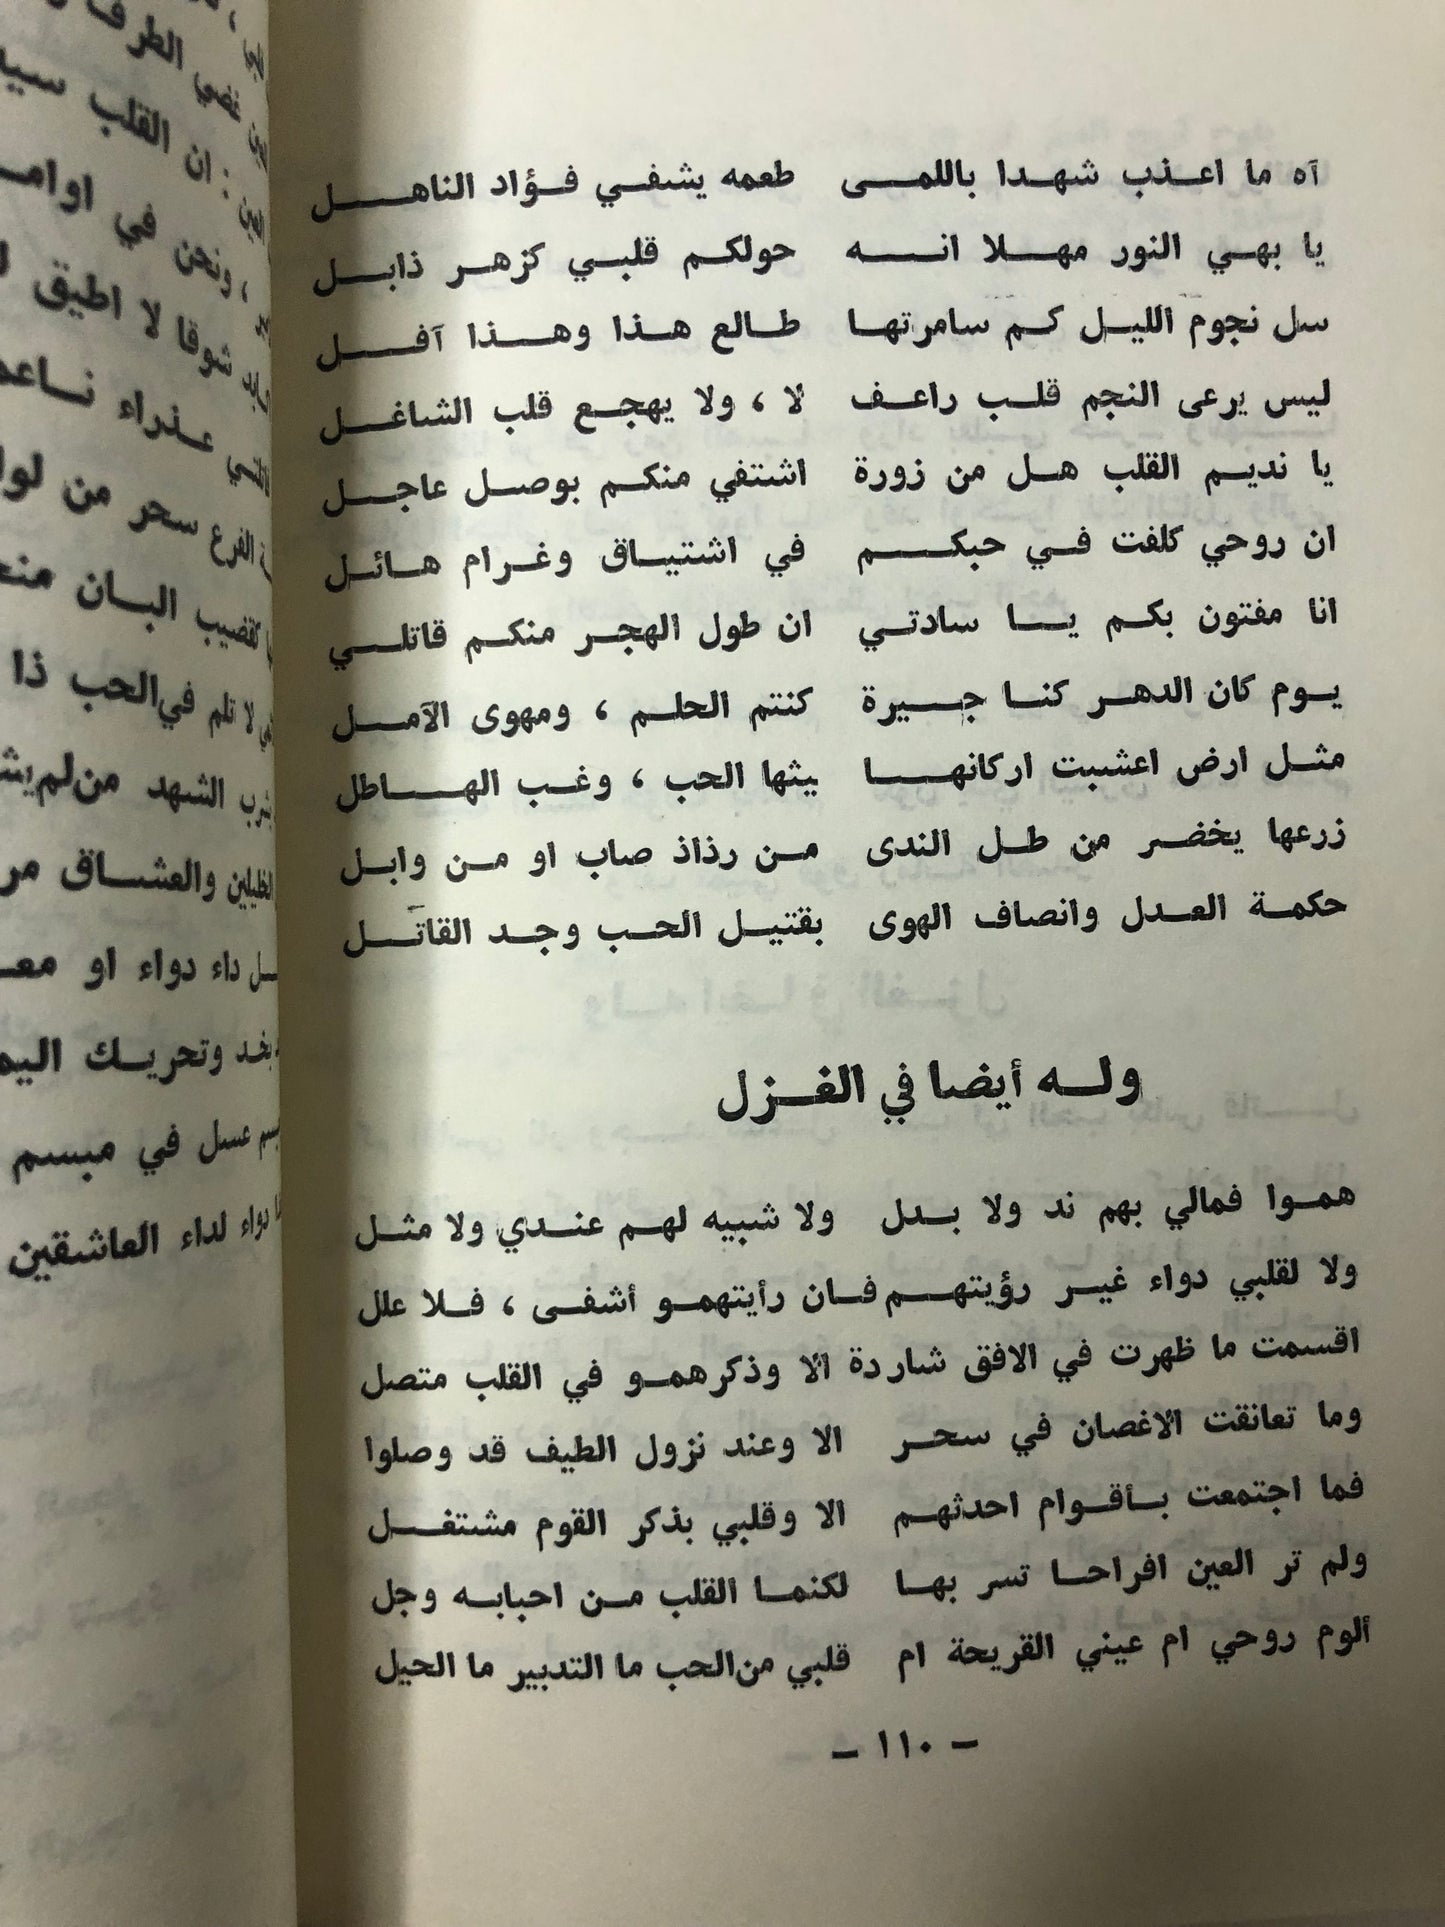 آه ما اعذب شهدا باللمى طعمه يشفي فؤاد الناهل
يا بهي النور مهلا انه حولكم قلبي كزهر ذابل
سل نجوم الليل كم سامرتها طالع هذا وهذا آفل
ليس يرعى النجم قلب راعف لا ، ولا يهجع قلب الشاغل
يا نديم القلب هل من زورة اشتفي منكم بوصل عاجل
ان روحي كلفت في حبكم في اشتياق وغرام هائل
انا مفتون بكم يا سادتي ان طول الهجر منكم قاتلي
يوم كان الدهر كنا جيرة كنتم الحلم ، ومهوى الآمل
مثل ارض اعشبت اركانها بيثها الحب ، وغب الهاطل
زرعها يخضر من طل الندى من رذاذ صاب او من وابل
حكمة العدل وانصاف الهوى بقتيل الحب وجد القاتل
وله أيضا في الغزل
هموا فمالي بهم ند ولا بدل ولا شبيه لهم عندي ولا مثل
ولا لقلبي دواء غير رؤيتهم فان رأيتهمو أشفى ، فلا علل
اقسمت ما ظهرت في الافق شاردة الا وذكرهمو في القلب متصل
وما تعانقت الاغصان في سحر الا وعند نزول الطيف قد وصلوا
فما اجتمعت بأقوام احدثهم الا وقلبي بذكر القوم مشتغل
ولم تر العين افراحا تسر بها لكنما القلب من احبابه وجل
ألوم روحي ام عيني القريحة ام قلبي من الحب ما التدبير ما الحيل
– ١١٠ –
غضي الطرف
ان القلب
العين : ونحن في
شوقا لا اطيق
عذراء
الفرع سحر من
كقضيب البان
لا تلم في الحب ذا
الشهد من لم
والعشاق
داء دواء او
وتحريك
عسل في مبسم
دواء لداء العاشقين